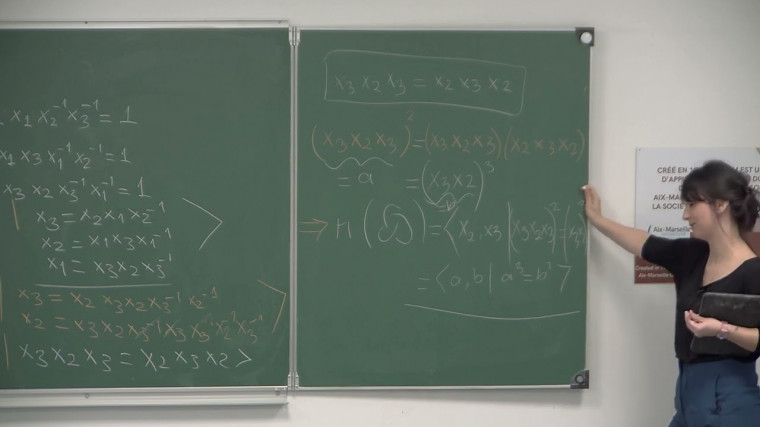 x₁x₂⁻¹x₃⁻¹ = 1
x₁x₃x₁⁻¹x₂⁻¹ = 1
x₃x₂x₃⁻¹x₁⁻¹ = 1
x₃ = x₂x₁x₂⁻¹
x₂ = x₁x₃x₁⁻¹ >
x₁ = x₃x₂x₃⁻¹
x₃ = x₂ x₃x₂x₃⁻¹ x₂⁻¹
x₂ = x₃x₂x₃⁻¹x₃x₃x₂⁻¹x₃⁻¹ >
x₃x₂x₃ = x₂x₃x₂ >
x₃x₂x₃ = x₂x₃x₂
(x₃x₂x₃)² = (x₃x₂x₃)(x₂x₃x₂)
= a = (x₃x₂)³
b
⇒ Π( ) = < x₂,x₃ | (x₃x₂x₃)² = (x₃x₂
= < a,b | a²=b³ >
CRÉE EN
D'APP
AIX-MAR
LA SOCIÉTÉ
Aix-Marseille